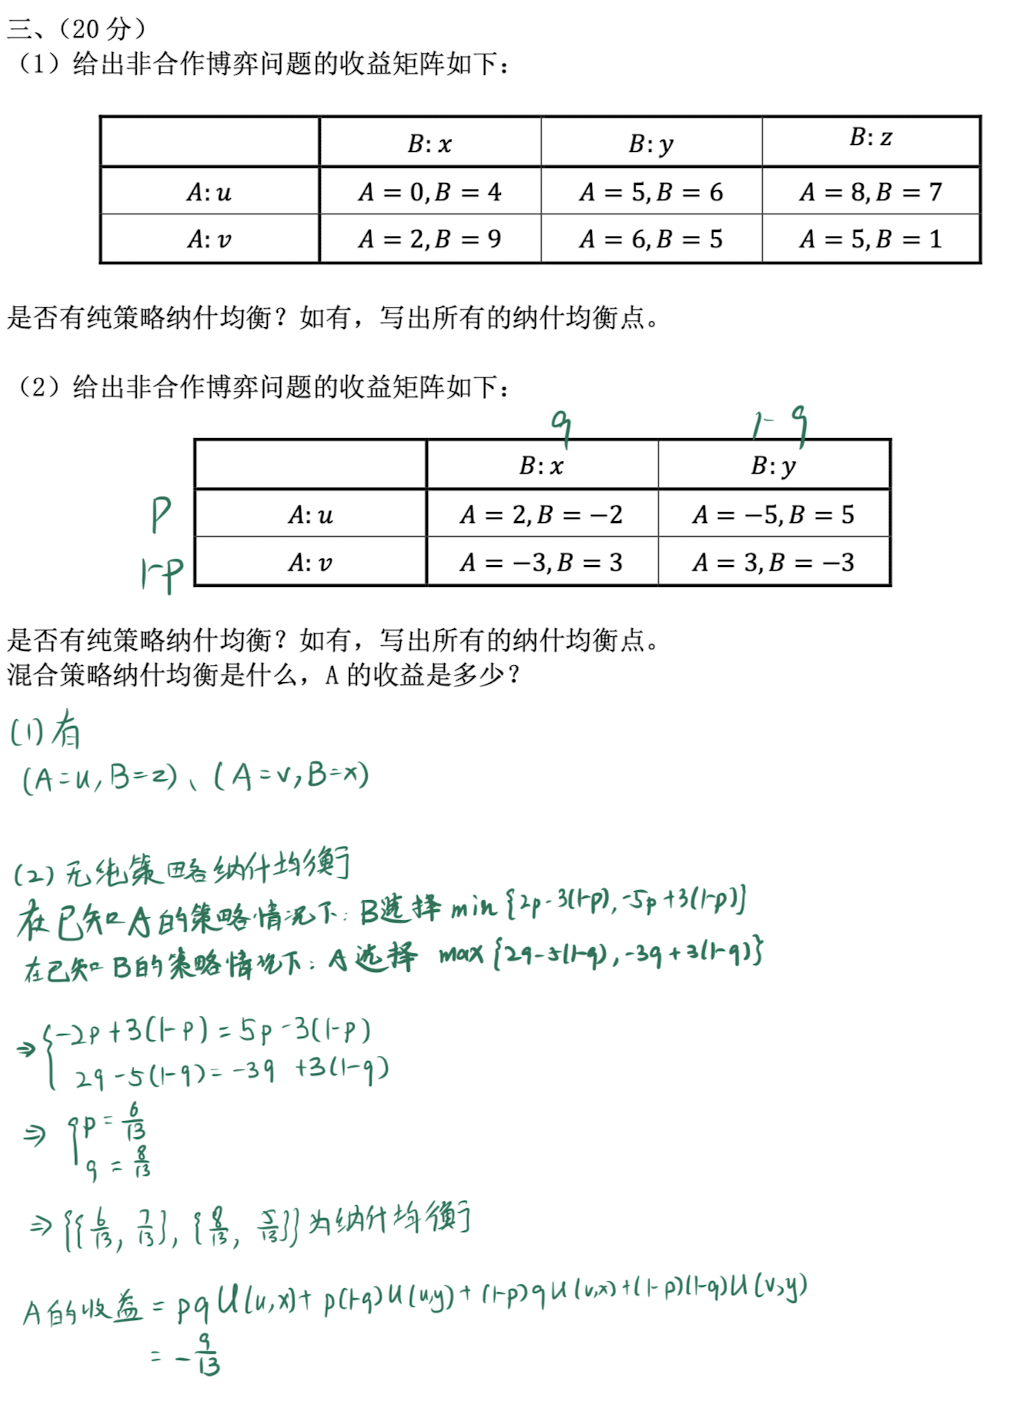 三、（20 分）
（1）给出非合作博弈问题的收益矩阵如下：
B: x B: y B: z
A: u A = 0, B = 4 A = 5, B = 6 A = 8, B = 7
A: v A = 2, B = 9 A = 6, B = 5 A = 5, B = 1
是否有纯策略纳什均衡？如有，写出所有的纳什均衡点。
（2）给出非合作博弈问题的收益矩阵如下：
q 1-q
B: x B: y
p A: u A = 2, B = −2 A = −5, B = 5
1-p A: v A = −3, B = 3 A = 3, B = −3
是否有纯策略纳什均衡？如有，写出所有的纳什均衡点。
混合策略纳什均衡是什么，A 的收益是多少？
(1) 有
(A=u, B=z)、(A=v, B=x)
(2) 无纯策略纳什均衡
在已知A的策略情况下：B选择 min {2p-3(1-p), -5p+3(1-p)}
在已知B的策略情况下：A选择 max {2q-5(1-q), -3q+3(1-q)}
⇒ { -2p+3(1-p) = 5p-3(1-p)
2q-5(1-q) = -3q +3(1-q)
⇒ { p = 6/13
q = 8/13
⇒ {{6/13, 7/13}, {8/13, 5/13}} 为纳什均衡
A的收益 = pq U(u,x) + p(1-q) U(u,y) + (1-p)q U(v,x) + (1-p)(1-q) U(v,y)
= - 9/13